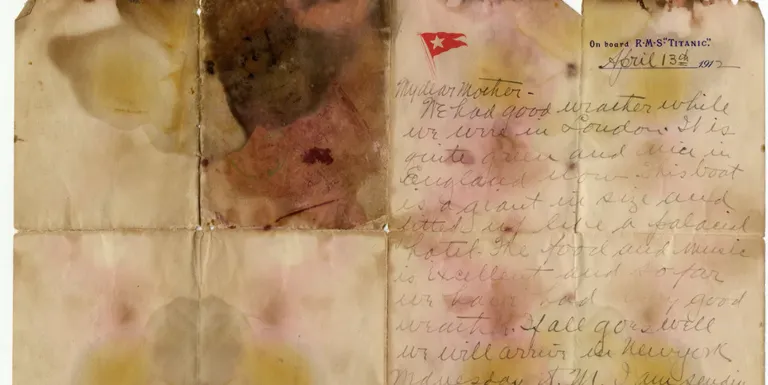 On board R·M·S "TITANIC."
April 13th 1912
My dear Mother -
We had good weather while
we were in London. It is
quite green and nice in
England now. This boat
is a giant in size and
fitted up like a palacial
hotel. The food and music
is excellent and so far
we have had very good
weather. If all goes well
we will arrive in New york
Wednesday A. M. I am sendin